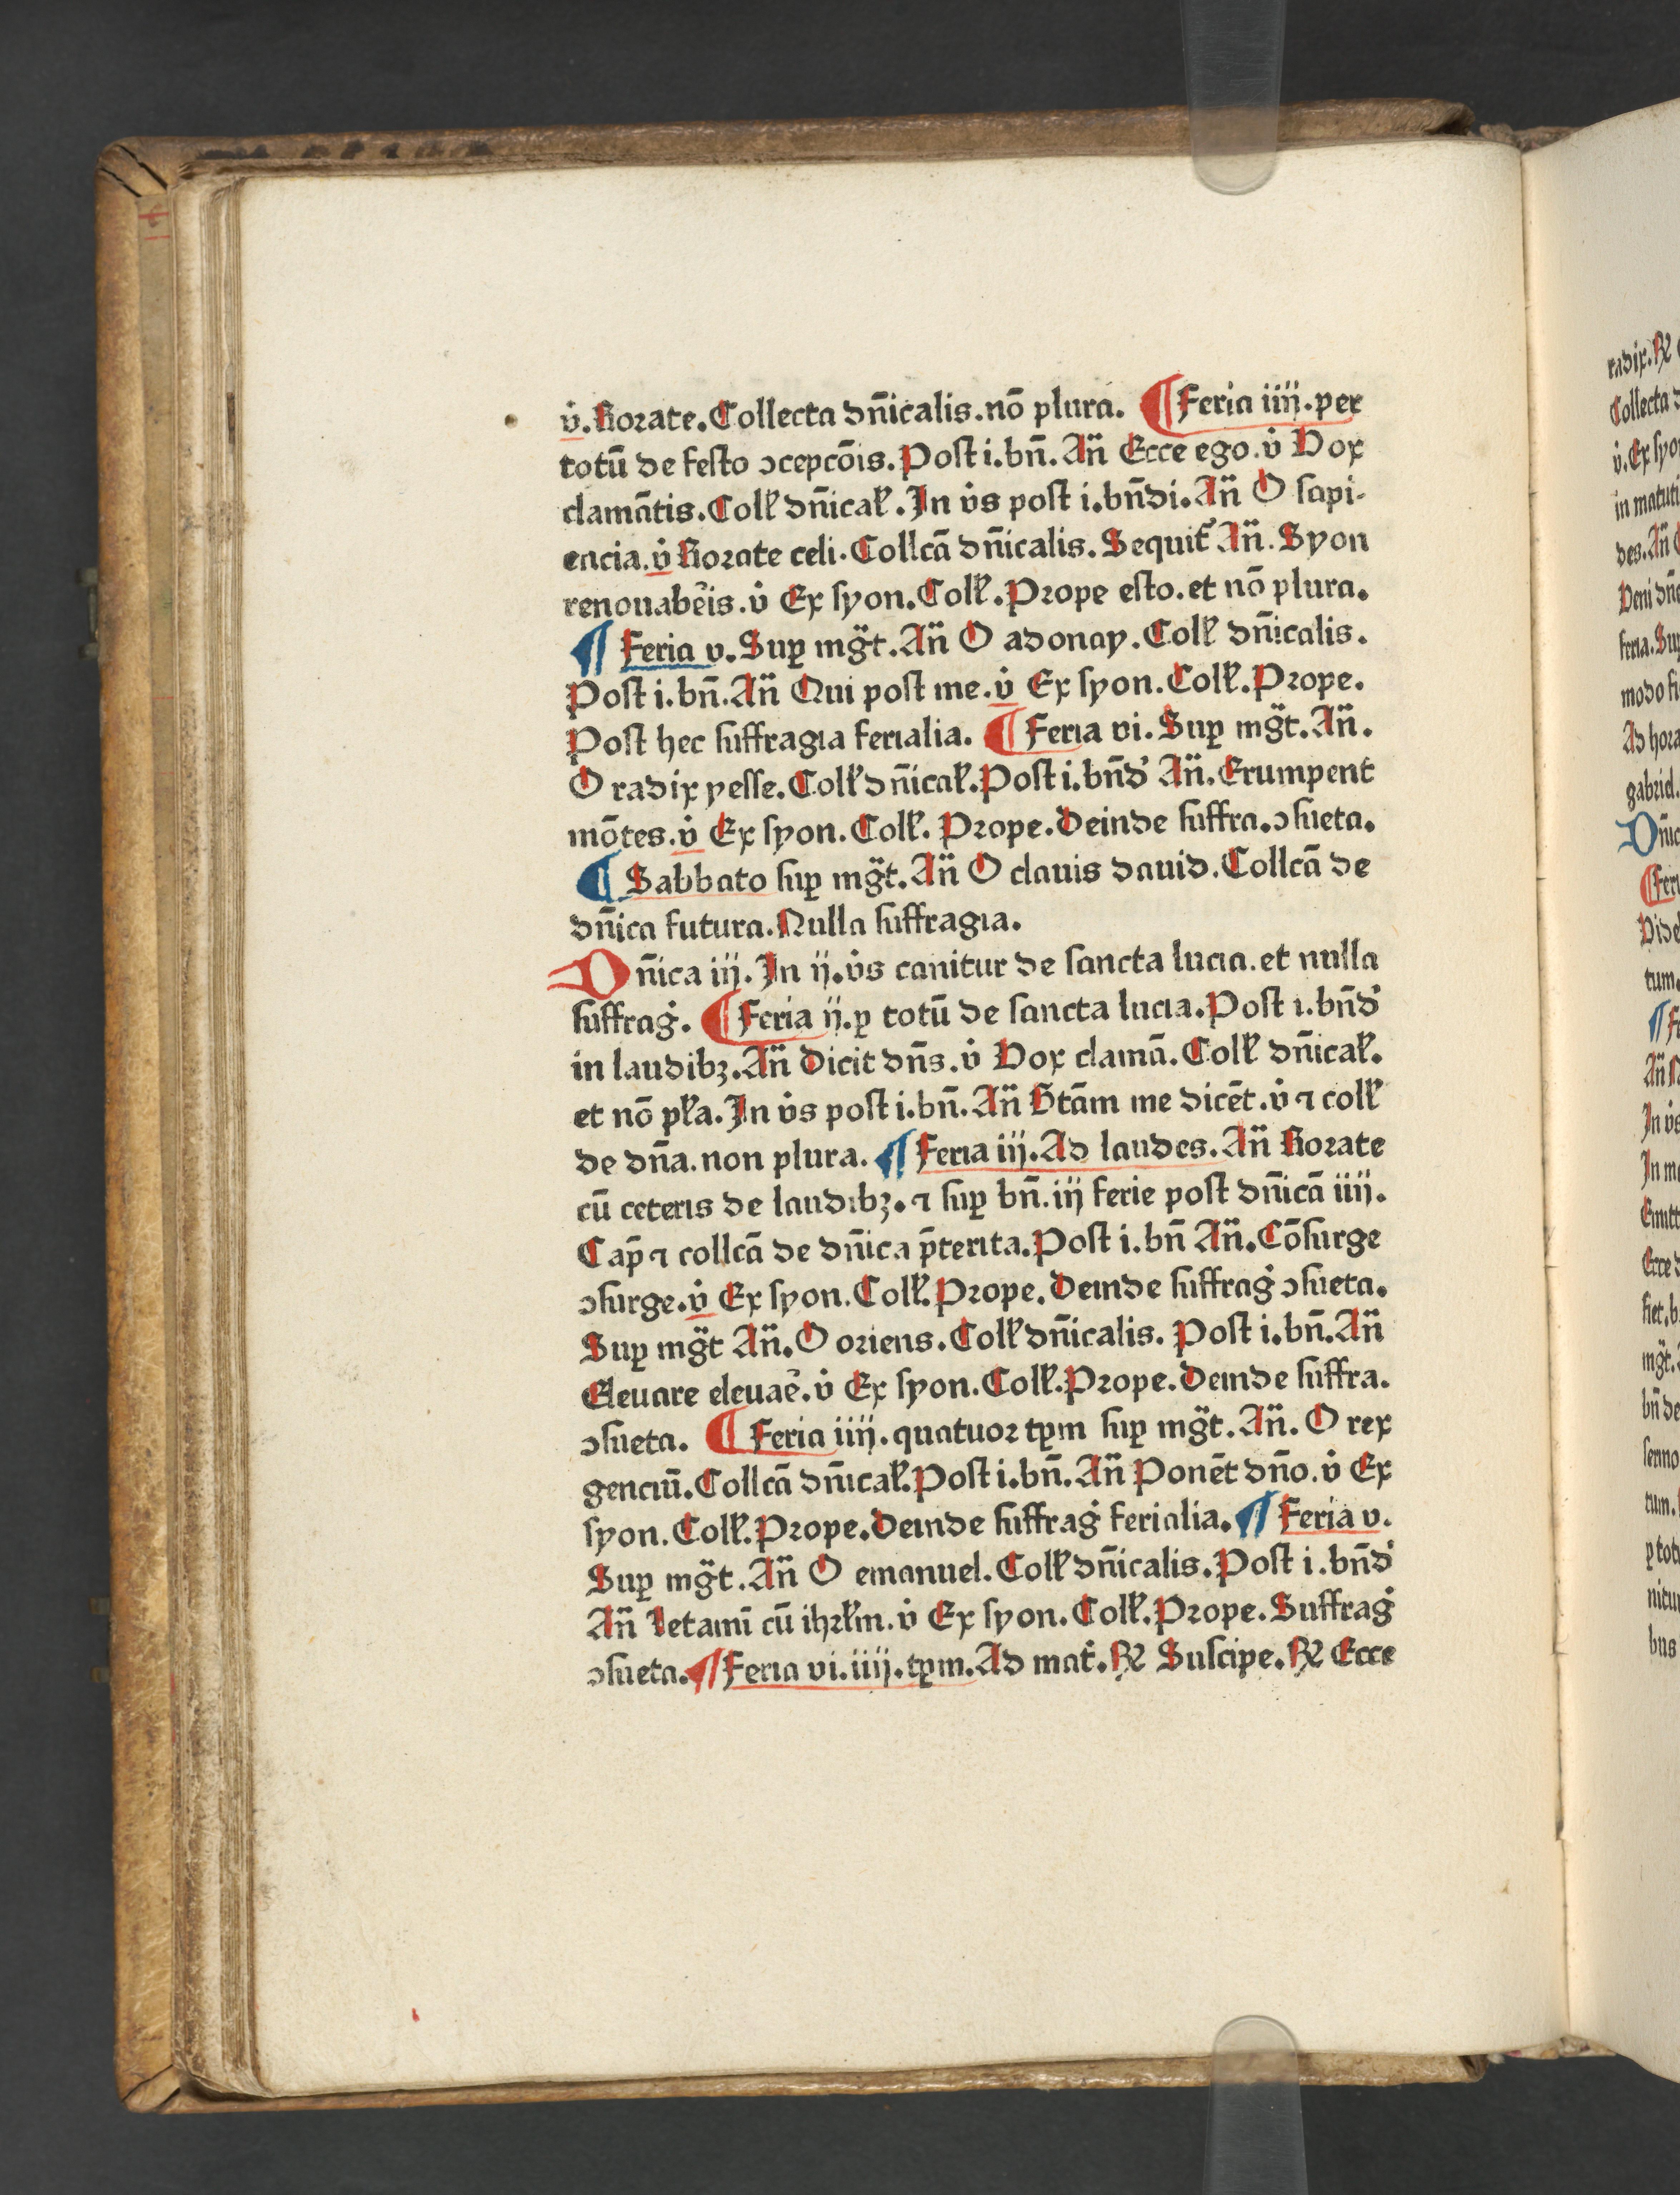 v̇. Rorate. Collecta dn̄icalis. nō plura. ¶ Feria iiij. per
totū de festo ↄcepcōis. Post i. bn̄. An̄ Ecce ego. v̇ Vox
clamātis. Coll̵ dn̄ical̵. In v̇s post i. bn̄di. An̄ O sapi-
encia. v̇ Rorate celi. Collcā dn̄icalis. Sequit᷑ An̄. Syon
renouabēis. v̇ Ex syon. Coll̵. Prope esto. et nō plura.
¶ Feria v. Sup̲ mg̈t. An̄ O adonay. Coll̵ dn̄icalis.
Post i. bn̄. An̄ Qui post me. v̇ Ex syon. Coll̵. Prope.
Post hec suffragia ferialia. ¶ Feria vi. Sup̲ mg̈t. An̄.
O radix yesse. Coll̵ dn̄ical̵. Post i. bn̄d' An̄. Erumpent
mōtes. v̇ Ex syon. Coll̵. Prope. Deinde suffra. ↄsueta.
¶ Sabbato sup̲ mg̈t. An̄ O clauis dauid. Collcā de
dn̄ica futura. Nulla suffragia.
Dn̄ica iij. In ij. v̇s canitur de sancta lucia. et nulla
suffraġ. ¶ Feria ij. p̲ totū de sancta lucia. Post i. bn̄d'
in laudibꝫ. An̄ Dicit dn̄s. v̇ Vox clamā. Coll̵ dn̄ical̵.
et nō pl̵a. In v̇s post i. bn̄. An̄ Btām me dicēt. v̇ ⁊ coll̵
de dn̄a. non plura. ¶ Feria iij. Ad laudes. An̄ Rorate
cū ceteris de laudibꝫ. ⁊ sup̲ bn̄. iij ferie post dn̄icā iiij.
Cap̄ ⁊ collcā de dn̄ica p̄terita. Post i. bn̄ An̄. Cōsurge
ↄsurge. v̇ Ex syon. Coll̵. Prope. Deinde suffraġ ↄsueta.
Sup̲ mg̈t An̄. O oriens. Coll̵ dn̄icalis. Post i. bn̄. An̄
Eleuare eleuaē. v̇ Ex syon. Coll̵. Prope. Deinde suffra.
ↄsueta. ¶ Feria iiij. quatuor tp̲m sup̲ mg̈t. An̄. O rex
genciū. Collcā dn̄ical̵. Post i. bn̄. An̄ Ponēt dn̄o. v̇ Ex
syon. Coll̵. Prope. Deinde suffraġ ferialia. ¶ Feria v.
Sup̲ mg̈t. An̄ O emanuel. Coll̵ dn̄icalis. Post i. bn̄d'
An̄ Letamī cū ihrl̵m. v̇ Ex syon. Coll̵. Prope. Suffraġ
ↄsueta. ¶ Feria vi. iiij. tp̲m. Ad mat̓. ℟ Suscipe. ℟ Ecce